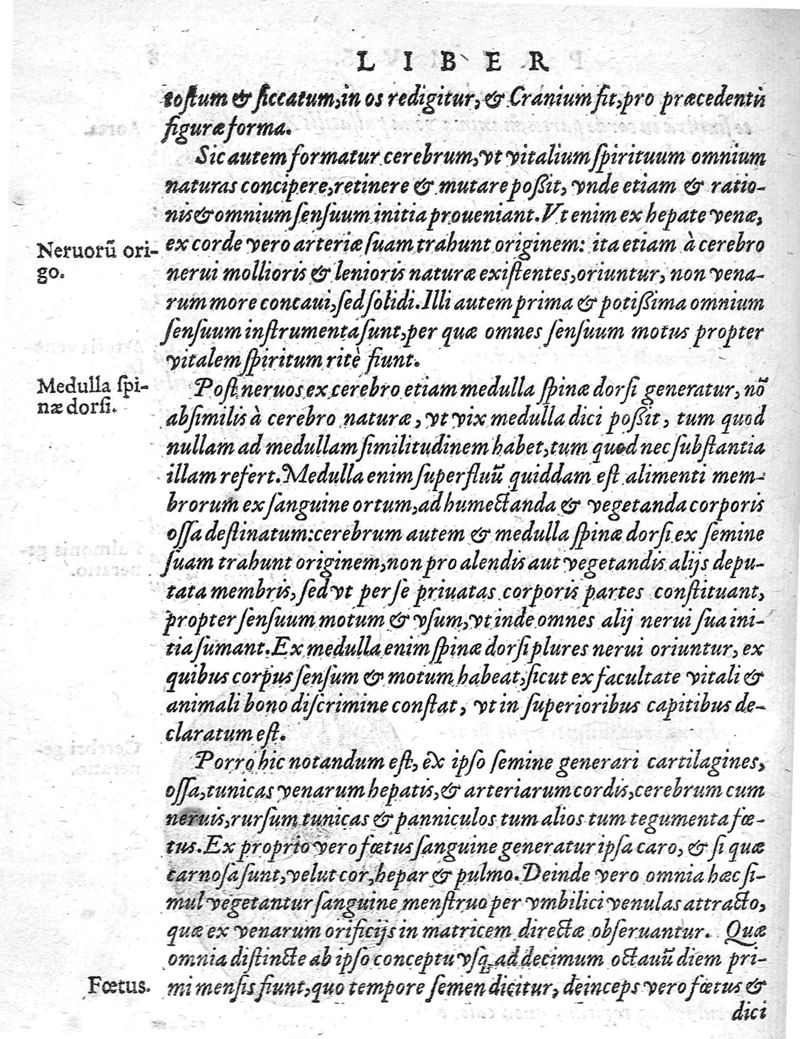 LIBER
tostum & siccatum, in os redigitur, & Cranium fit, pro præcedentiũ
figuræ forma.
Sic autem formatur cerebrum, vt vitalium spirituum omnium
naturas concipere, retinere & mutare poßit, vnde etiam & ratio-
nis & omnium sensuum initia proueniant. Vt enim ex hepate venæ,
Neruorũ ori-
go.
ex corde vero arteriæ suam trahunt originem: ita etiam à cerebro
nerui mollioris & lenioris naturæ existentes, oriuntur, non vena-
rum more concaui, sed solidi. Illi autem prima & potißima omnium
sensuum instrumenta sunt, per quæ omnes sensuum motus propter
vitalem spiritum ritè fiunt.
Medulla spi-
næ dorsi.
Post neruos ex cerebro etiam medulla spinæ dorsi generatur, nõ
absimilis à cerebro naturæ, vt vix medulla dici poßit, tum quod
nullam ad medullam similitudinem habet, tum quod nec substantia
illam refert. Medulla enim superfluũ quiddam est alimenti mem-
brorum ex sanguine ortum, ad humectanda & vegetanda corporis
ossa destinatum: cerebrum autem & medulla spinæ dorsi ex semine
suam trahunt originem, non pro alendis aut vegetandis alijs depu-
tata membris, sed vt per se priuatas corporis partes constituant,
propter sensuum motum & vsum, vt inde omnes alij nerui sua ini-
tia sumant. Ex medulla enim spinæ dorsi plures nerui oriuntur, ex
quibus corpus sensum & motum habeat, sicut ex facultate vitali &
animali bono discrimine constat, vt in superioribus capitibus de-
claratum est.
Porro hic notandum est, ex ipso semine generari cartilagines,
ossa, tunicas venarum hepatis, & arteriarum cordis, cerebrum cum
neruis, rursum tunicas & panniculos tum alios tum tegumenta fœ-
tus. Ex proprio vero fœtus sanguine generatur ipsa caro, & si quæ
carnosa sunt, velut cor, hepar & pulmo. Deinde vero omnia hæc si-
mul vegetantur sanguine menstruo per vmbilici venulas attracto,
quæ ex venarum orificijs in matricem directæ obseruantur. Quæ
omnia distincte ab ipso conceptu vsq; ad decimum octauũ diem pri-
Fœtus.
mi mensis fiunt, quo tempore semen dicitur, deinceps vero fœtus &
dici